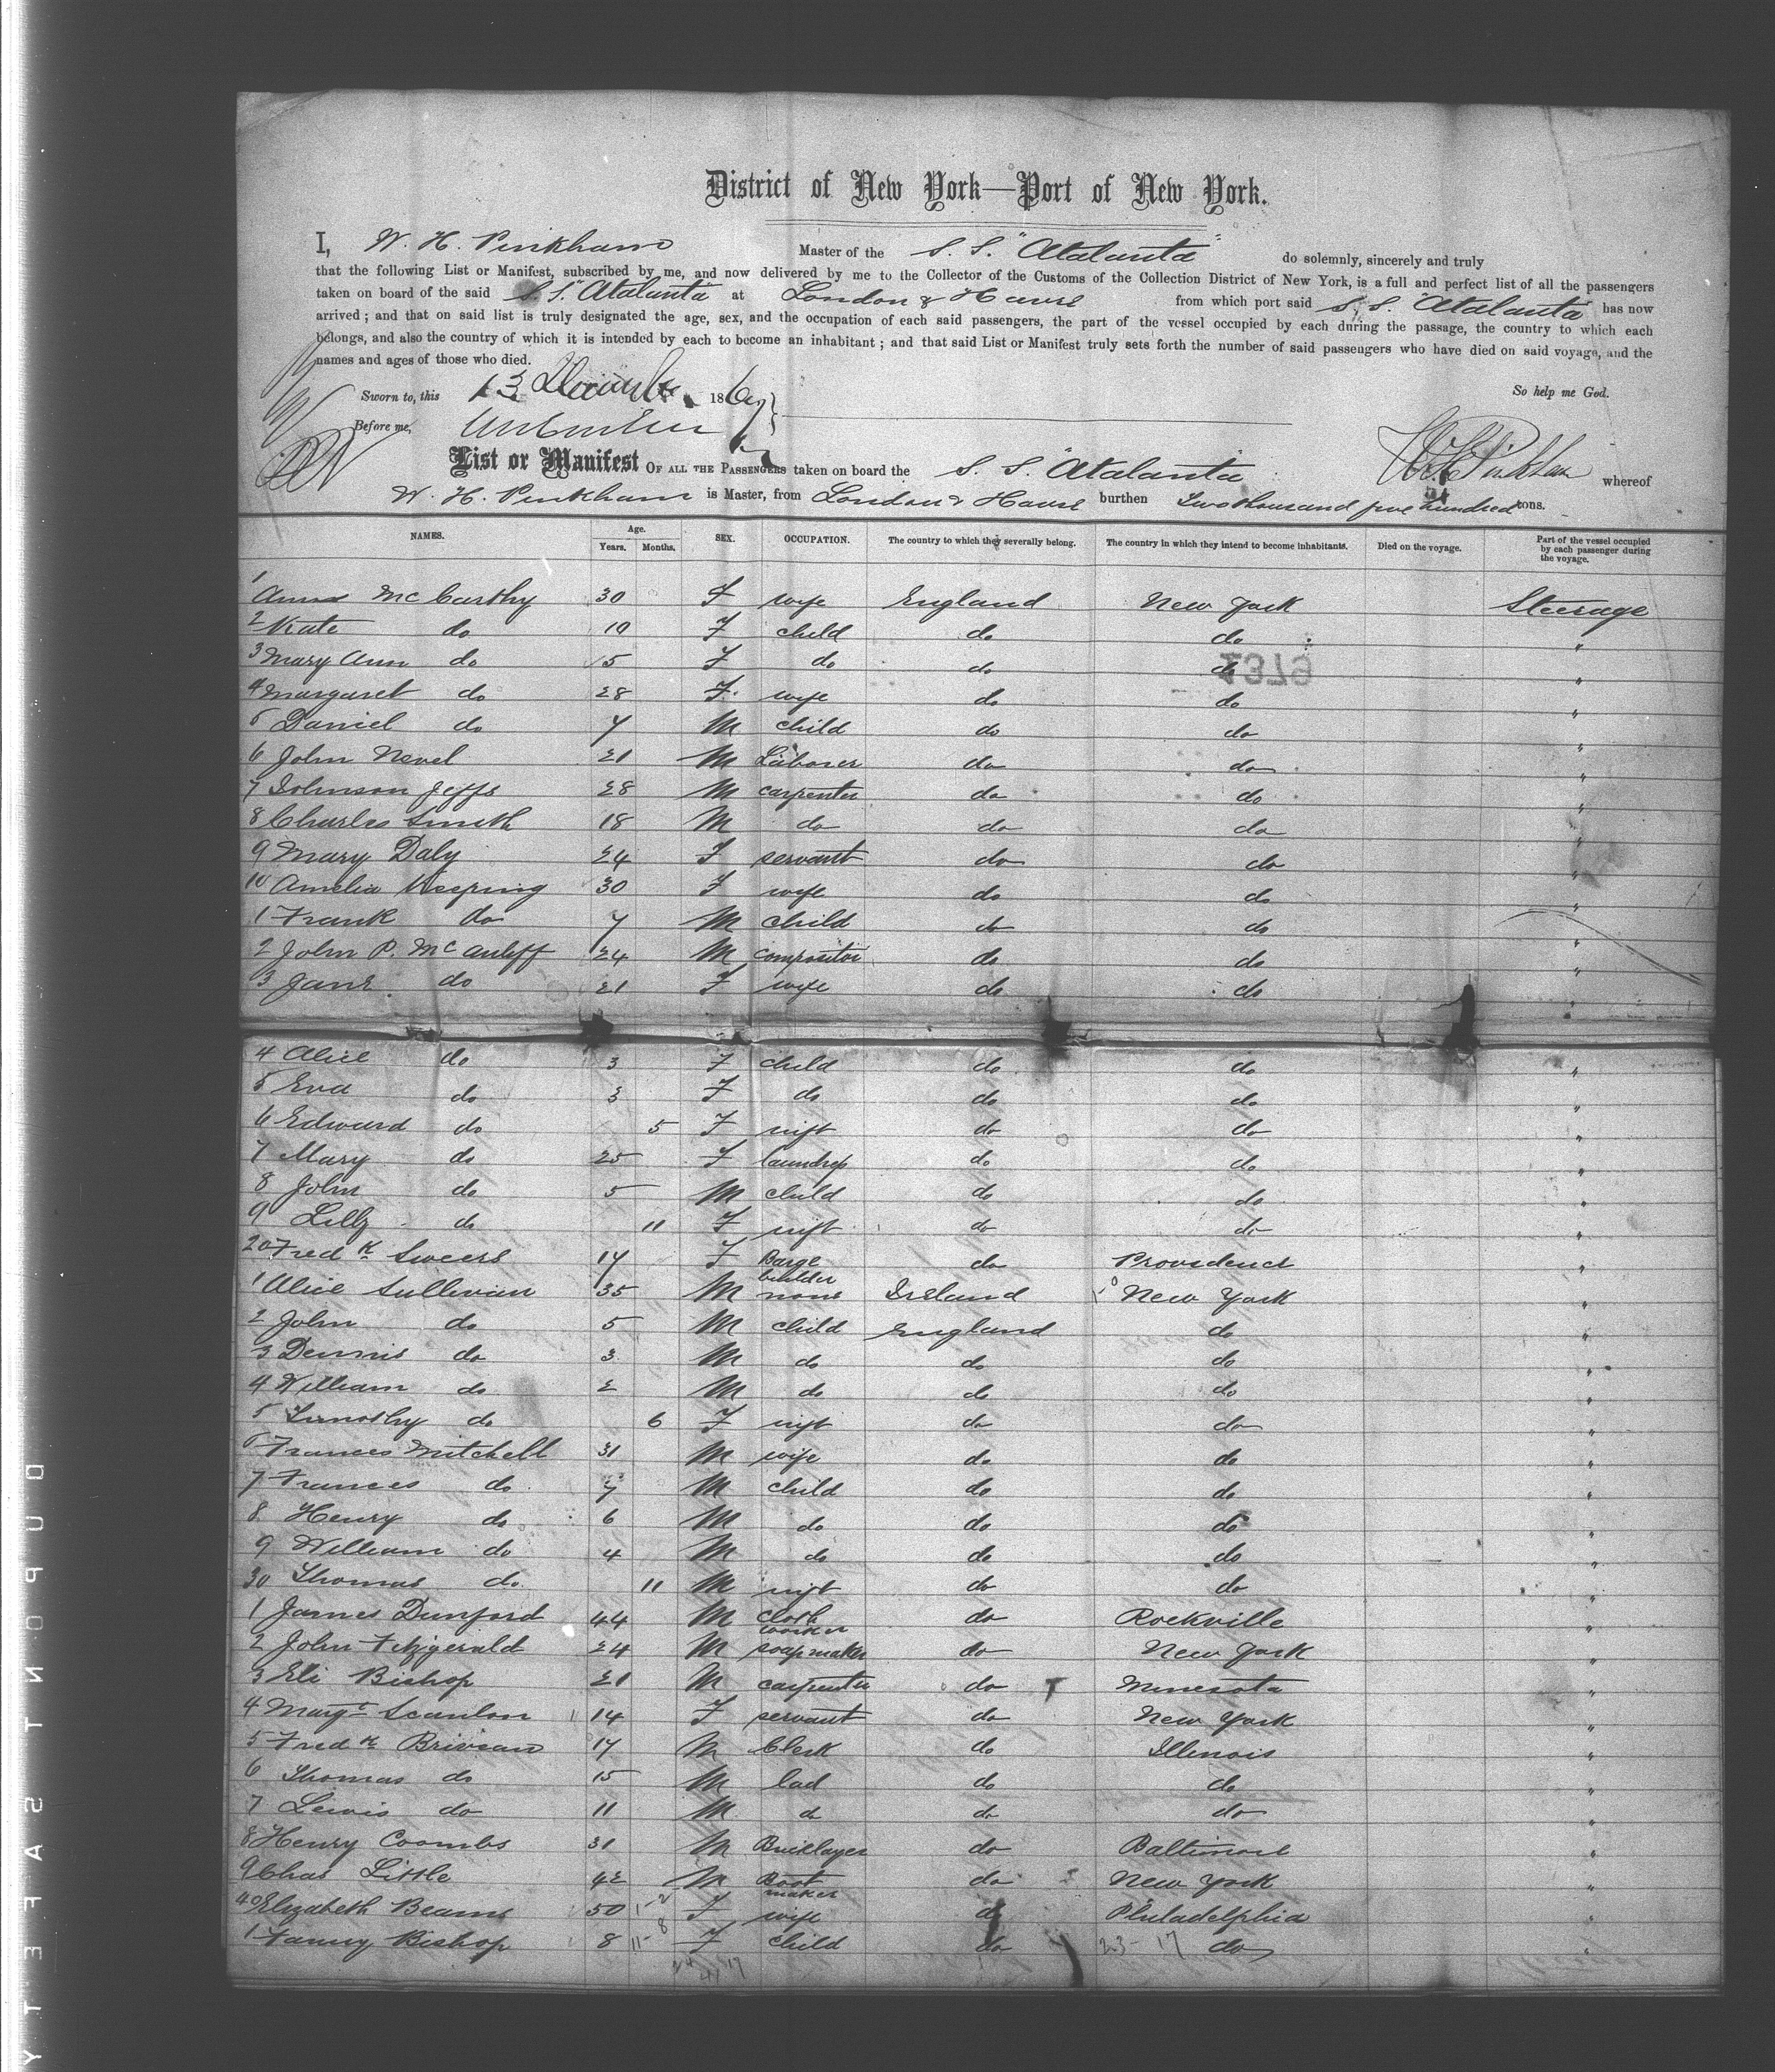 District of New York—Port of New York.
I, W. H. Pinkham Master of the S. S. "Atalanta" do solemnly, sincerely and truly
that the following List or Manifest, subscribed by me, and now delivered by me to the Collector of the Customs of the Collection District of New York, is a full and perfect list of all the passengers
taken on board of the said S. S. "Atalanta at London & Havre from which port said S. S. "Atalanta" has now
arrived ; and that on said list is truly designated the age, sex, and the occupation of each said passengers, the part of the vessel occupied by each during the passage, the country to which each
belongs, and also the country of which it is intended by each to become an inhabitant ; and that said List or Manifest truly sets forth the number of said passengers who have died on said voyage, and the
names and ages of those who died.
Sworn to, this 13 December 1867 So help me God.
Before me,
List or Manifest OF ALL THE PASSENGERS taken on board the S. S. "Atalanta W H Pinkham whereof
W. H. Pinkham is Master, from London & Havre burthen Two thousand five hundred tons.
NAMES. Age. Years. Months. SEX. OCCUPATION. The country to which they severally belong. The country in which they intend to become inhabitants. Died on the voyage. Part of the vessel occupied by each passenger during the voyage.
1 Anna McCarthy 30 F wife England New York Steerage
2 Kate do 10 F child do do "
3 Mary Ann do 5 F do do do "
4 Margaret do 28 F. wife do do "
5 Daniel do 7 M child do do "
6 John Nevel 21 M Laborer do do "
7 Johnson Jeffs 28 M carpenter do do "
8 Charles Smith 18 M do do do "
9 Mary Daly 24 F servant do do "
10 Amelia 30 F wife do do "
1 Frank do 7 M child do do "
2 John P. McAuleff 24 M compositor do do "
3 Jane do 21 F wife do do "
4 Alice do 3 F child do do "
5 Eva do 3 F do do do "
6 Edward do 5 F inft do do "
7 Mary do 25 F laundrss do do "
8 John do 5 M child do do "
9 Lilly do 11 F inft do do "
20 Fredk Sweers 17 F Barge builder do Providence "
1 Alice Sullivan 35 M none Ireland New York "
2 John do 5 M child England do "
3 Dennis do 3 M do do do "
4 William do 2 M do do do "
5 Timothy do 6 F inft do do "
6 Frances Mitchell 31 M wife do do "
7 Frances do 7 M child do do "
8 Henry do 6 M do do do "
9 William do 4 M do do do "
30 Thomas do 11 M inft do do "
1 James Dunford 44 M cloth worker do Rockville "
2 John Fitzgerald 24 M soapmaker do New York "
3 Eli Bishop 21 M carpenter do Minesota "
4 Margt Scanlon 14 F servant do New York "
5 Fredk 17 M Clerk do Illinois "
6 Thomas do 15 M lad do do "
7 Lewis do 11 M do do do "
8 Henry Coombs 31 M Bricklayer do Baltimore "
9 Chas Little 42 M Boot maker do New York "
40 Elizabeth Beams 50 F wife do Philadelphia "
1 Fanny Bishop 8 F child do 23-17 do "
DUPONT SAFETY